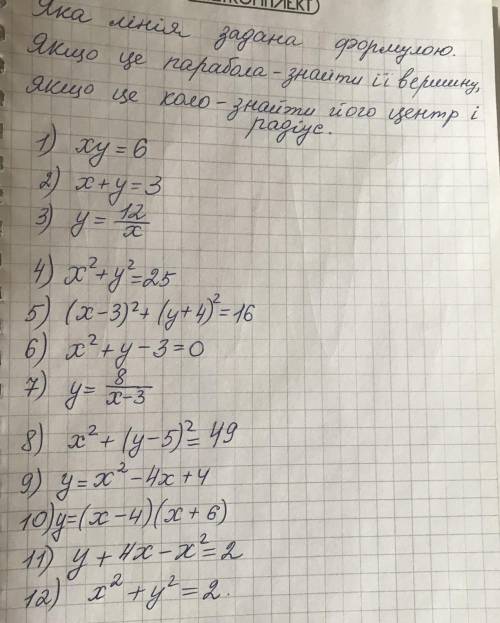 КОМПЛЕКТ
Яка лінія задана формулою.
Якщо це парабола - знайти її вершину,
Якщо це коло - знайти його центр і
радіус.
1) xy = 6
2) x + y = 3
3) y = 12/x
4) x² + y² = 25
5) (x - 3)² + (y + 4)² = 16
6) x² + y - 3 = 0
7) y = 8/(x - 3)
8) x² + (y - 5)² = 49
9) y = x² - 4x + 4
10) y = (x - 4)(x + 6)
11) y + 4x - x² = 2
12) x² + y² = 2.